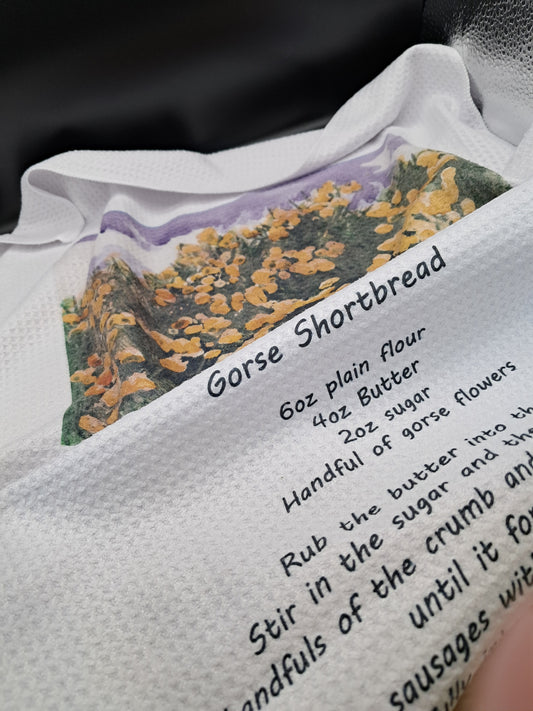 Gorse Shortbread
6oz plain flour
4oz Butter
2oz sugar
Handful of gorse flowers
Rub the butter into
Stir in the sugar and the
of the crumb and
until it
sausages